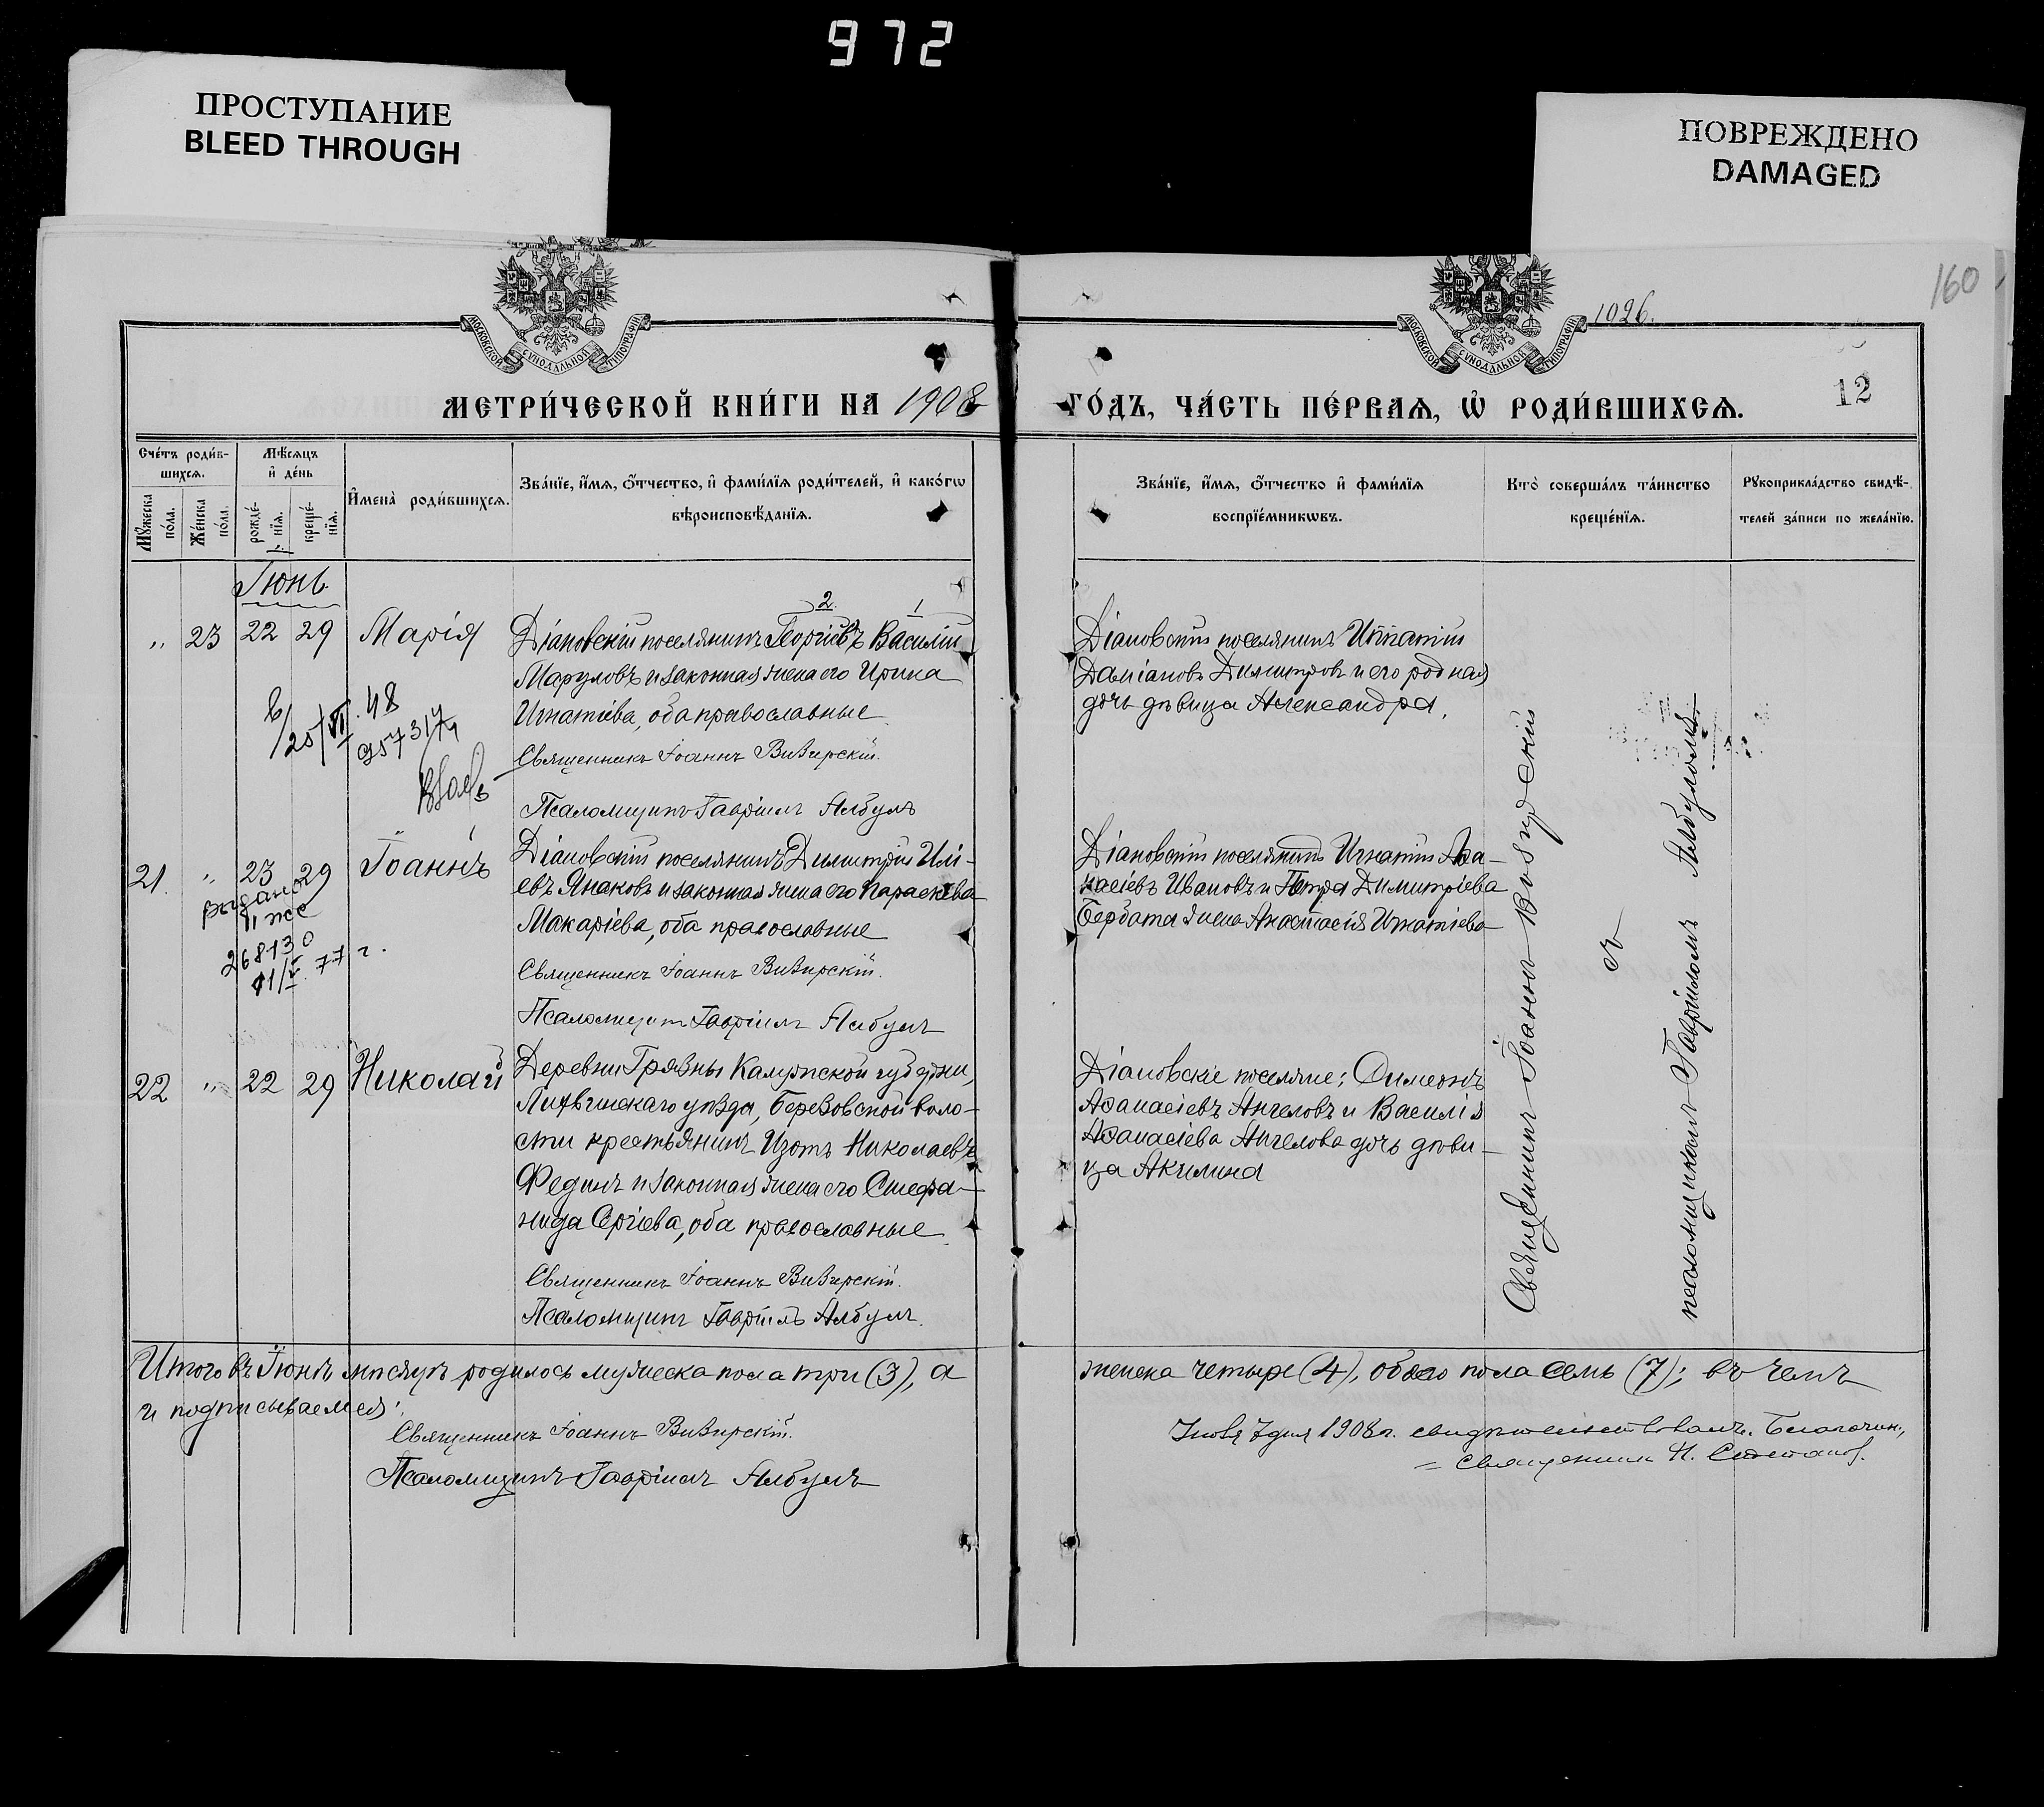 972
ПРОСТУПАНИЕ
BLEED THROUGH
ПОВРЕЖДЕНО
DAMAGED
160
1026.
МОСКОВСКОЙ СУНОДАЛЬНОЙ ТИПОГРАФІИ
МОСКОВСКОЙ СУНОДАЛЬНОЙ ТИПОГРАФІИ
12
МЕТРИ́ЧЕСКОЙ КНИ́ГИ НА 1908
ГО́ДЪ, ЧА́СТЬ ПЕ́РВАѦ, Ѡ҆ РОДИ́ВШИХСѦ.
Сче́тъ роди́в-
шихсѧ.
Мꙋ́жеска по́ла.
Же́нска по́ла.
Мѣ́сѧцъ
и҆ де́нь
рожде́-нїѧ.
креще́-нїѧ.
И҆мена̀ роди́вшихсѧ.
Зва́нїе, и҆́мѧ, ѻ҆́тчество, и҆ фами́лїѧ роди́телей, и҆ како́гѡ
вѣроисповѣ́данїѧ.
Зва́нїе, и҆́мѧ, ѻ҆́тчество и҆ фами́лїѧ
воспрїе́мникѡвъ.
Кто̀ соверша́лъ та́инство
креще́нїѧ.
Рꙋкоприкла́дство свидѣ́-
телей за́писи по жела́нїю.
Іюнь
2 1
„ 23 22 29 Марія Діановскій поселянинъ Георгіевъ Василій
Маруловъ и законная жена его Ирина
Игнатіева, оба православные
Священникъ Іоаннъ Визирскій.
Псаломщикъ Гавріилъ Албулъ
Діановскій поселянинъ Игнатій
Даміановъ Димитровъ и его родная
дочь дѣвица Александра.
21. „ 23 29 Іоаннъ Діановскій поселянинъ Димитрій Илі-
евъ Янаковъ и законная жена его Параскева
Макаріева, оба православные
Священникъ Іоаннъ Визирскій.
Псаломщикъ Гавріилъ Албулъ
Выдано
268130
77 г.
Діановскій поселянинъ Игнатій Аѳа-
насіевъ Ивановъ и Петра Димитріева
Бербата жена Анастасія Игнатіева
22 „ 22 29 Николай Деревни Грязны Калужской губерніи,
Лихвинскаго уѣзда, Березовской воло-
сти крестьянинъ Изотъ Николаевъ
Фединъ и законная жена его Стефа-
нида Сергіева, оба православные
Священникъ Іоаннъ Визирскій.
Псаломщикъ Гавріилъ Албулъ.
Діановскіе поселяне: Симеонъ
Аѳанасіевъ Ангеловъ и Василія
Аѳанасіева Ангелова дочь дѣви-
ца Акилина
Священникъ Іоаннъ Визирскій
съ
псаломщикомъ Гавріиломъ Албуломъ
Итого въ Іюнѣ мѣсяцѣ родилось мужеска пола три (3), а
женска четыре (4), обоего пола семь (7); въ чемъ
и подписываемся:
Священникъ Іоаннъ Визирскій.
Псаломщикъ Гавріилъ Албулъ
Іюля 7 дня 1908 г. свидѣтельствовалъ. Благочин.,
= священникъ Н. Стефановъ.